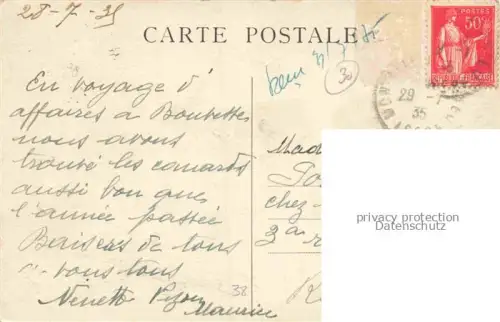 28-7-35
CARTE POSTALE
POSTES
50c
reçu 31/7/35
30
29 -7
35
En voyage d'
affaires a
nous avons
trouvé les canards
aussi bon que
l'année passée
Baisers de tous
a vous tous
Nénette
Maurice
38
Mad
chez
3a r
privacy protection
Datenschutz